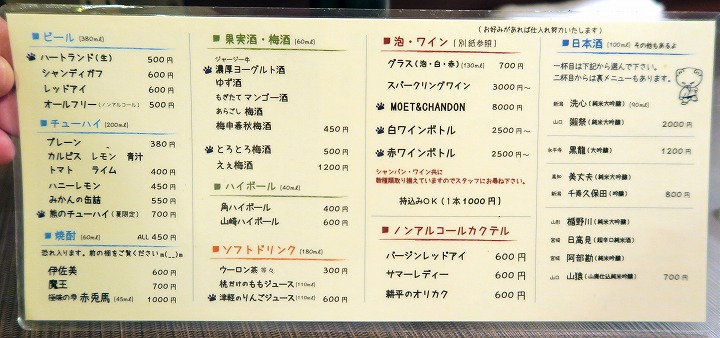 ■ビール (380㎖)
ハートランド(生) 500円
シャンディガフ 600円
レッドアイ 600円
オールフリー(ノンアルコール) 500円
■チューハイ (200㎖)
プレーン 380円
カルピス レモン 青汁
トマト ライム 400円
ハニーレモン 450円
みかんの缶詰 550円
熊のチューハイ(夏限定) 700円
■焼酎 (60㎖) ALL 450円
恐れ入ります。前の棚をご覧くださいm(__)m
伊佐美 600円
魔王 700円
極味の雫 赤兎馬 (45㎖) 1000円
■果実酒・梅酒 (60㎖)
ジャージー牛
濃厚ヨーグルト酒
ゆず酒
もぎたてマンゴー酒
あらごし 梅酒
梅申春秋梅酒 450円
とろとろ梅酒 500円
ええ梅酒 1200円
■ハイボール (40㎖)
角ハイボール 400円
山崎ハイボール 600円
■ソフトドリンク (180㎖)
ウーロン茶 等々 300円
桃だけのももジュース (110㎖)
津軽のりんごジュース (110㎖) 600円
(お好みがあれば仕入れ努力いたします)
■泡・ワイン [別紙参照]
グラス(泡・白・赤) (130㎖) 700円
スパークリングワイン 3000円~
MOET&CHANDON 8000円
白ワインボトル 2500円~
赤ワインボトル 2500円~
シャンパン・ワイン共に
数種類取り揃えていますのでスタッフにお尋ね下さい。
持込みOK (1本1000円)
■ノンアルコールカクテル
バージンレッドアイ 600円
サマーレディー 600円
耕平のオリカク 600円
■日本酒 (100㎖) その他もあるよ
一杯目は下記から選んで下さい。
二杯目からは裏メニューもあります。
新潟 洗心(純米大吟醸) (90㎖)
山口 獺祭(純米大吟醸) 2000円
永平寺 黒龍(大吟醸) 1200円
高知 美丈夫(純米大吟醸)
新潟 千寿久保田(吟醸) 800円
山形 楯野川(純米大吟醸)
宮城 日高見(超辛口純米酒)
宮城 阿部勘(純米吟醸)
山口 山猿(山廃仕込純米吟醸) 700円